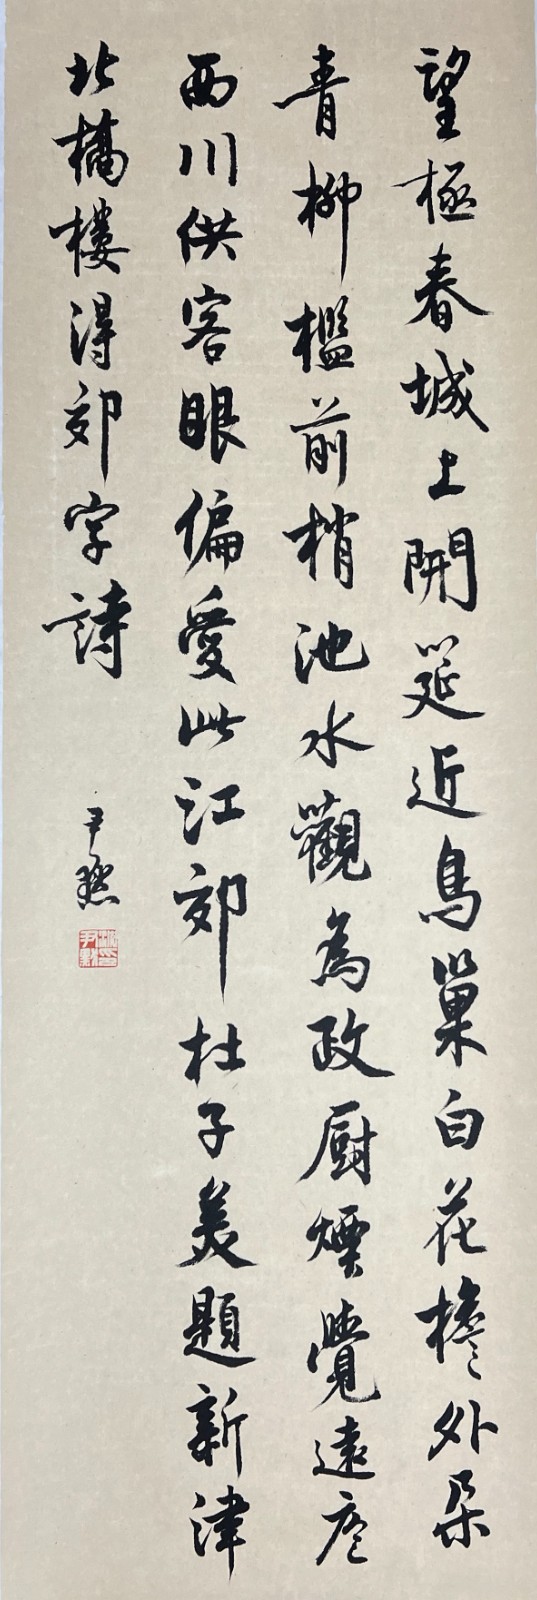 望極春城上開筵近鳥巢白花檐外朵
青柳檻前梢池水觀為政厨煙覺遠庖
西川供客眼偏愛此江郊杜子美題新津
北橋樓得郊字詩
尹默